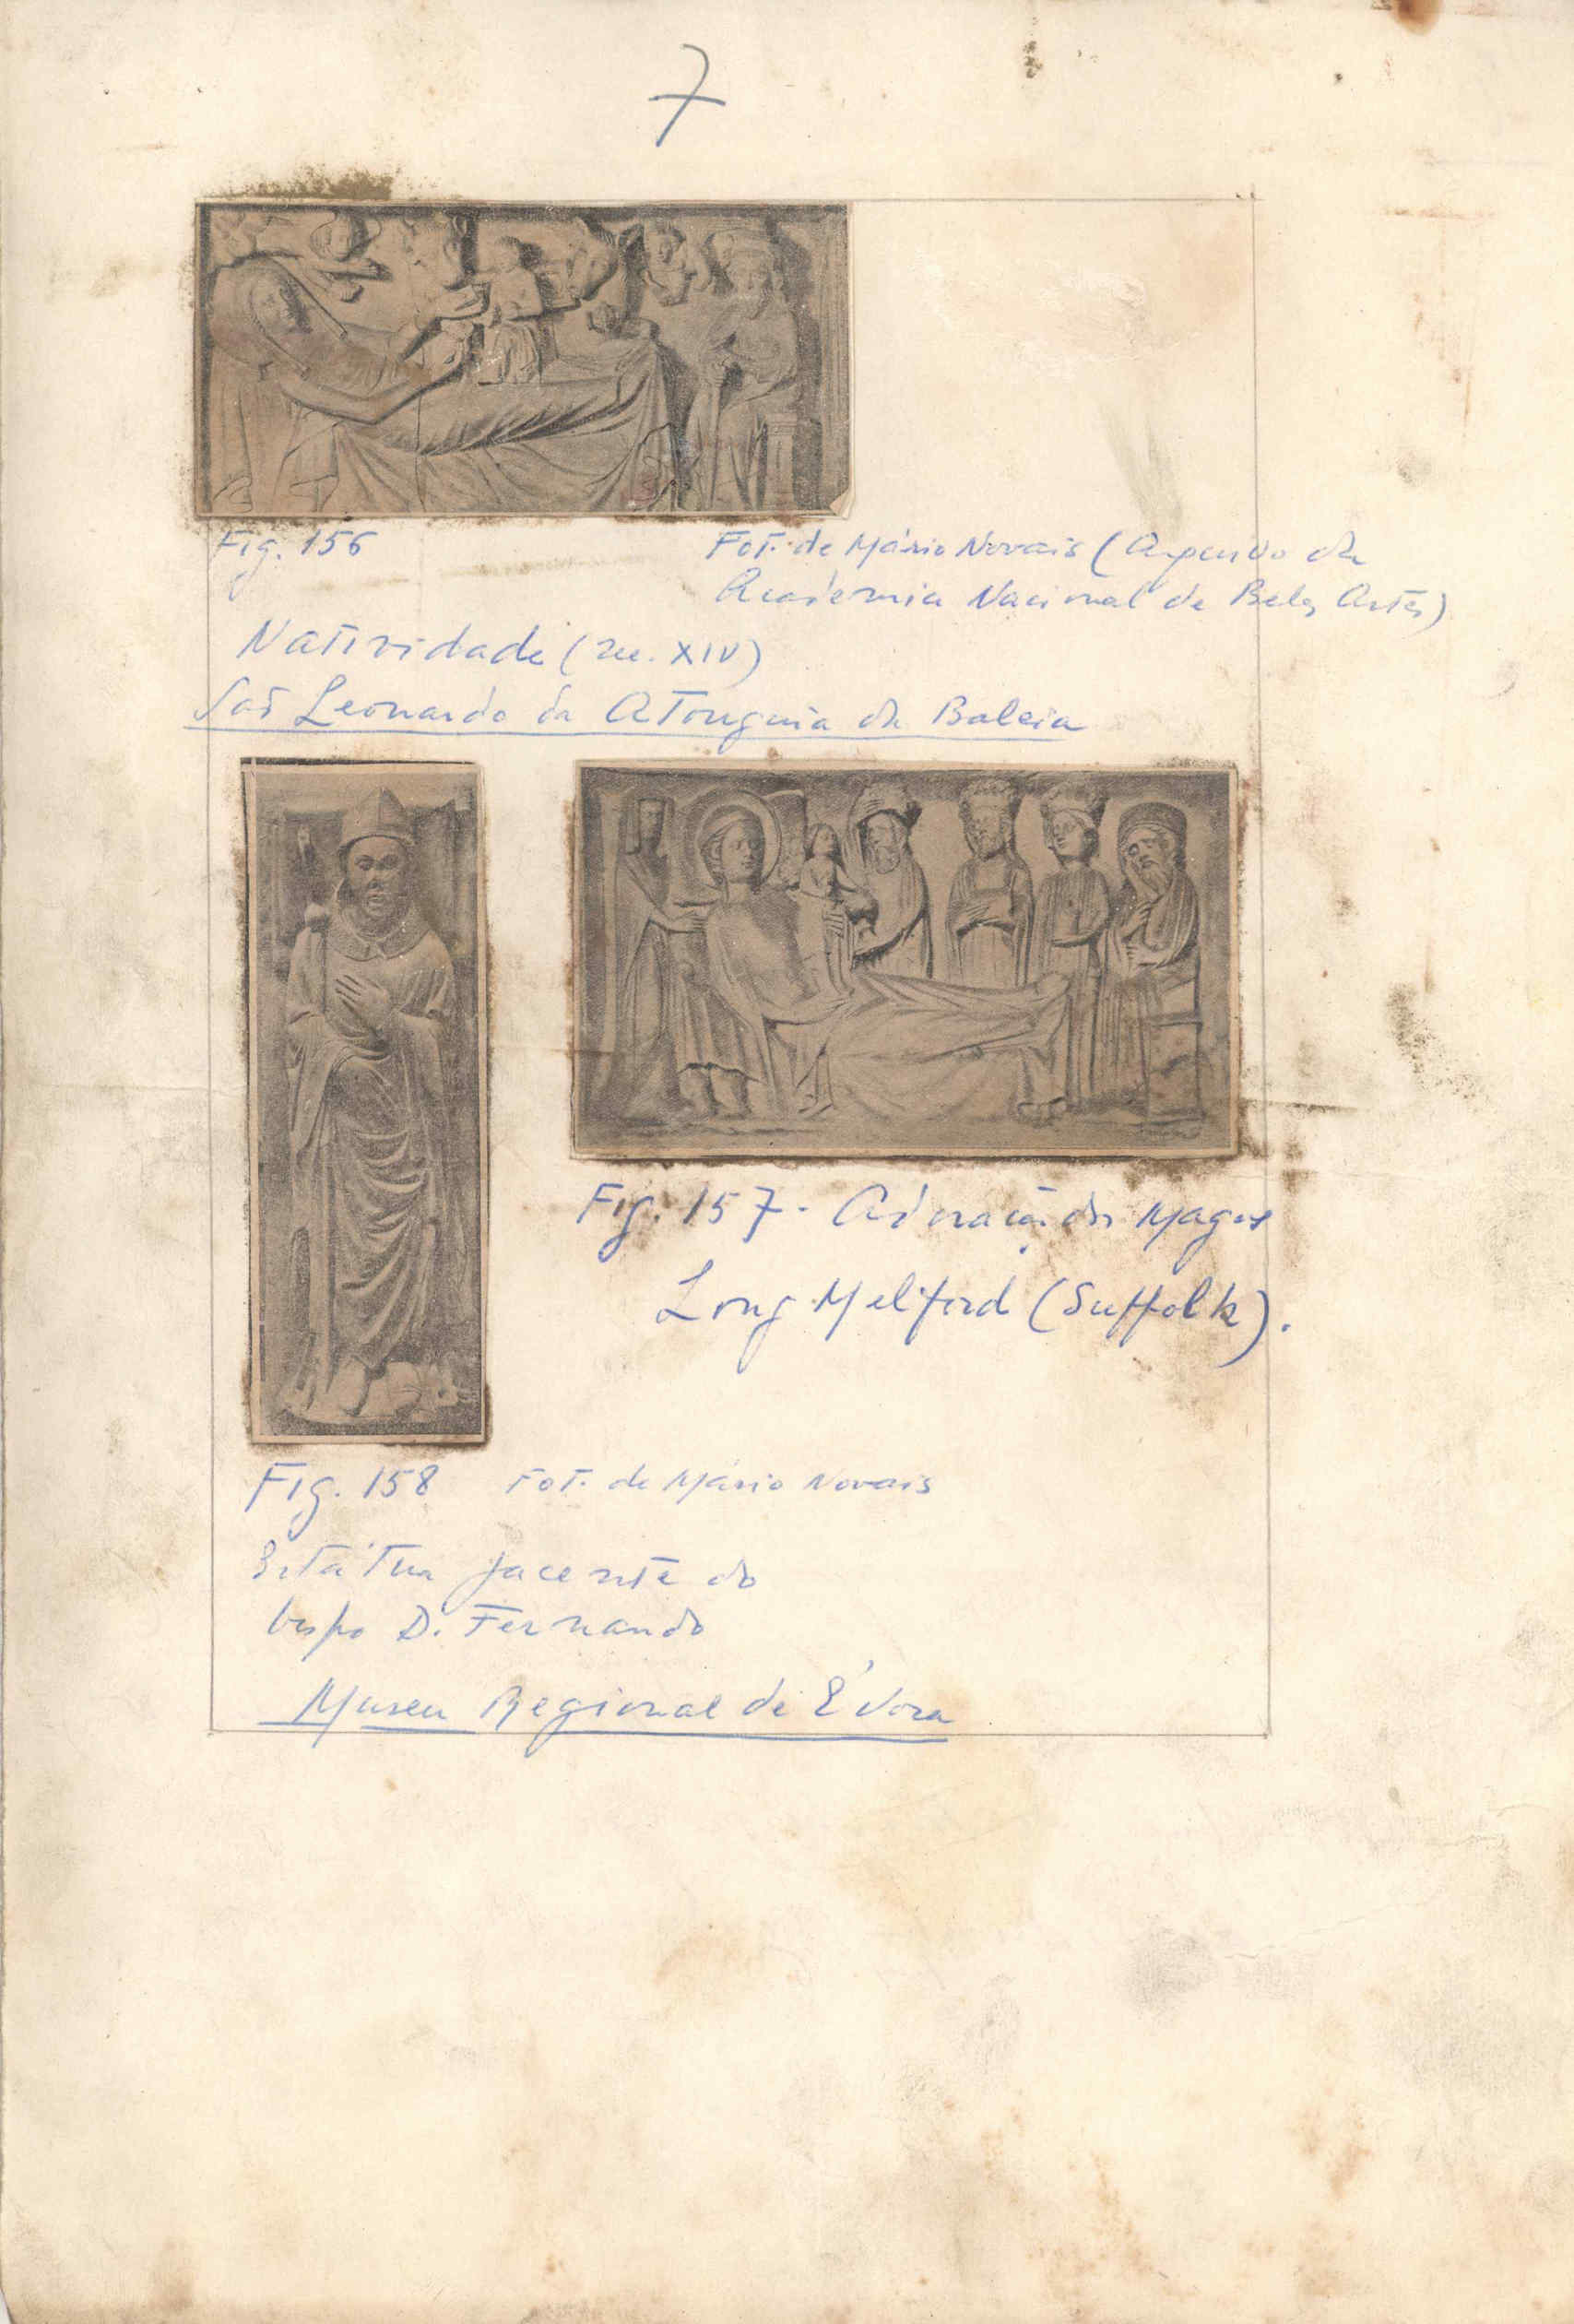 7
Fig. 156
Fot. de Mário Novais (Arquivo da
Academia Nacional de Belas Artes)
Natividade (séc. XIV)
São Leonardo da Atouguia da Baleia
Fig. 157 - Adoração dos Magos
Long Melford (Suffolk).
Fig. 158 Fot. de Mário Novais
Estátua jacente do
bispo D. Fernando
Museu Regional de Évora